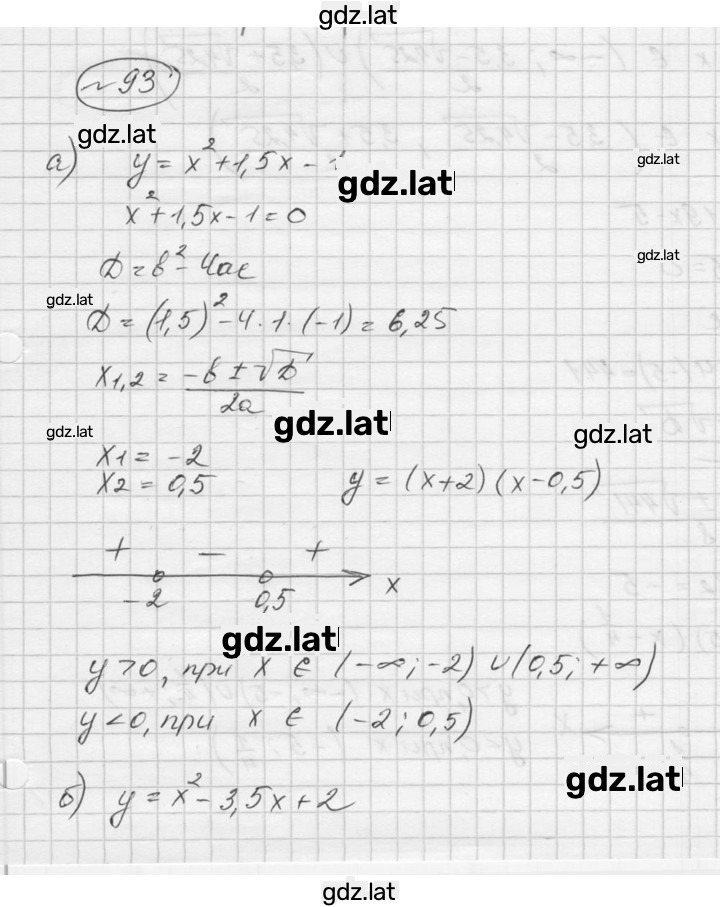 gdz.lat
№ 93
gdz.lat
а) y = x² + 1,5x -
gdz.lat
gdz.lat
x² + 1,5x - 1 = 0
D = b² - 4ac
gdz.lat
gdz.lat
D = (1,5)² - 4 · 1 · (-1) = 6,25
x1,2 = (-b ± √D) / 2a
gdz.lat
gdz.lat
gdz.lat
x1 = -2
x2 = 0,5
y = (x+2)(x-0,5)
+ - +
-2 0,5 x
gdz.lat
y > 0, при x ∈ (-∞; -2) ∪ (0,5; +∞)
y < 0, при x ∈ (-2; 0,5)
gdz.lat
б) y = x² - 3,5x + 2
gdz.lat